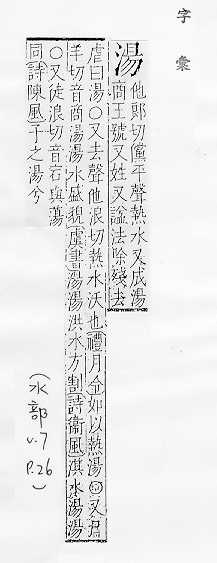 字彙
湯
他郎切儻平聲熱水又成湯
商王號又姓又諡法除殘去
虐曰湯○又去聲他浪切熱水沃也禮月令如以熱湯○又尸
羊切音商湯湯水盛貌虞書湯湯洪水方割詩衞風淇水湯湯
○又徒浪切音宕與蕩
同詩陳風子之湯兮
(水部
v.7
P.26
)